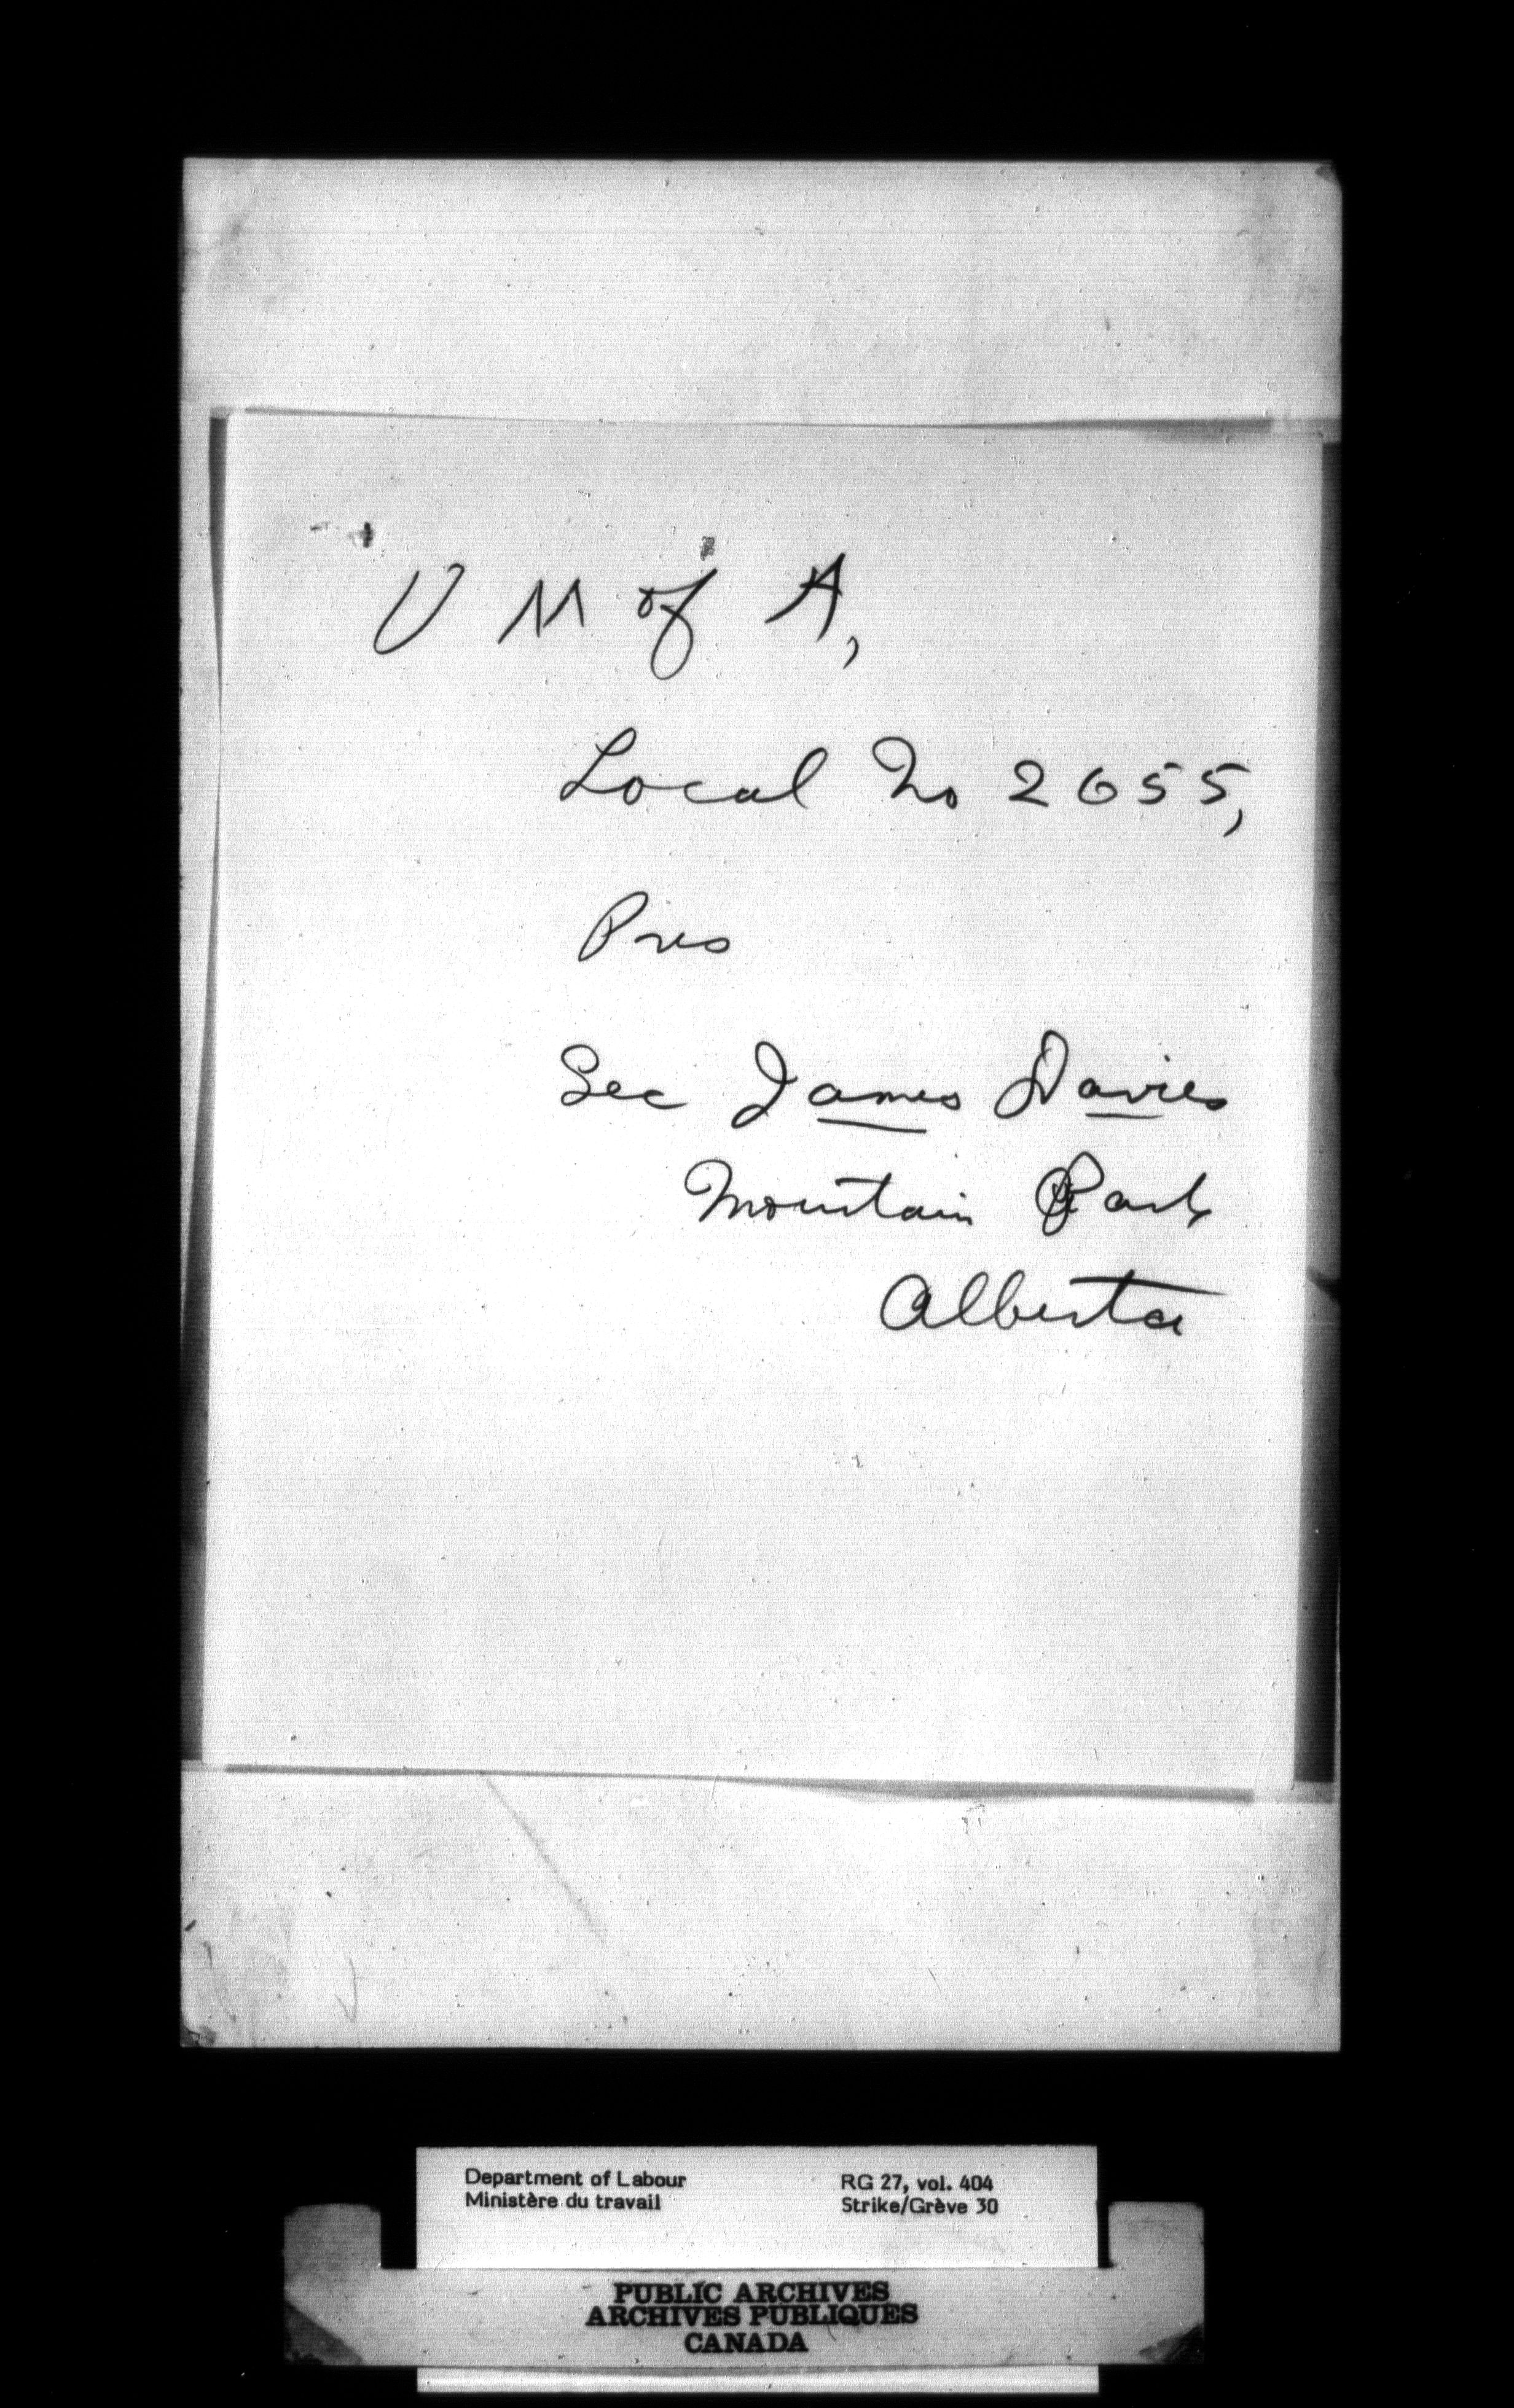 U M of A,
Local No 2655,
Pres
Sec James Davies
Mountain Park
Alberta
Department of Labour
Ministère du travail
RG 27, vol. 404
Strike/Grève 30
PUBLIC ARCHIVES
ARCHIVES PUBLIQUES
CANADA